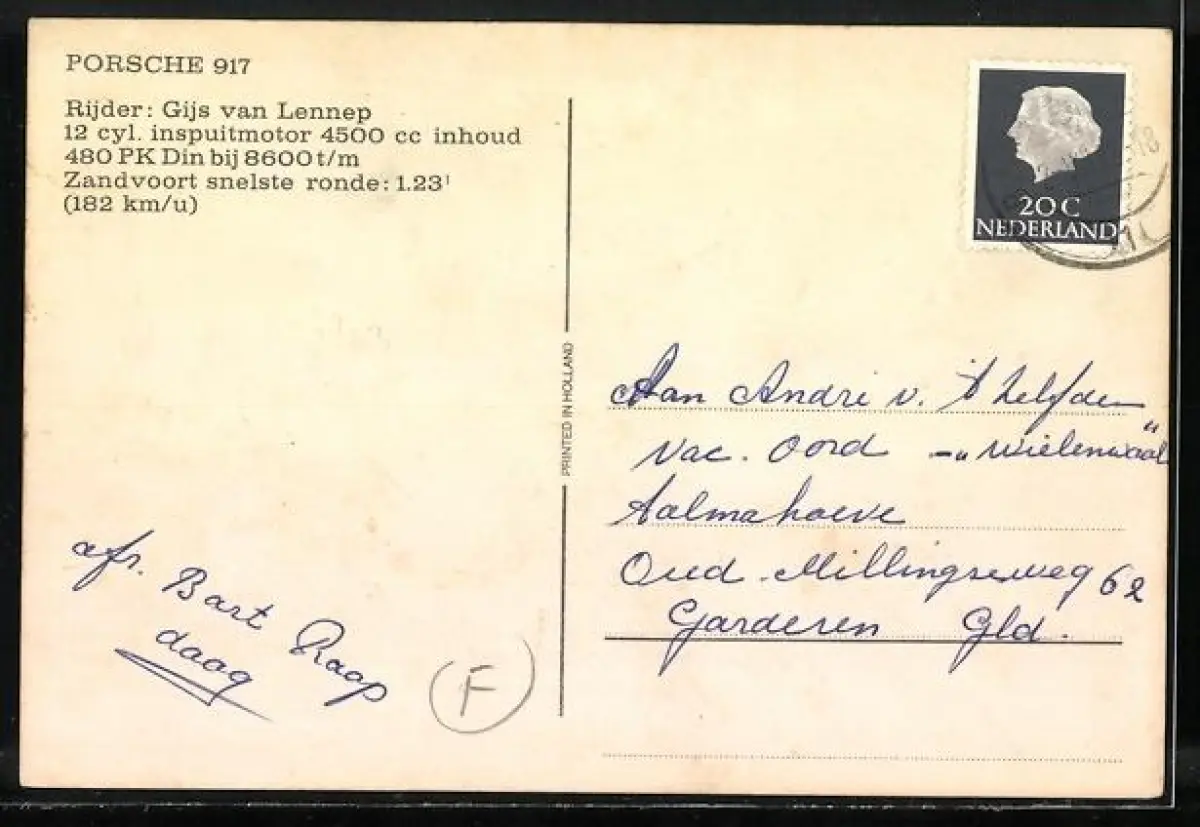 PORSCHE 917
Rijder: Gijs van Lennep
12 cyl. inspuitmotor 4500 cc inhoud
480 PK Din bij 8600 t/m
Zandvoort snelste ronde: 1.23¹
(182 km/u)
20 C
NEDERLAND
PRINTED IN HOLLAND
Aan Andri v.
Vac. Oord - „Wielenwaal"
Aalmahoeve
Oud Millingseweg 62
Garderen Gld.
afz. Bart Raap
daag
F